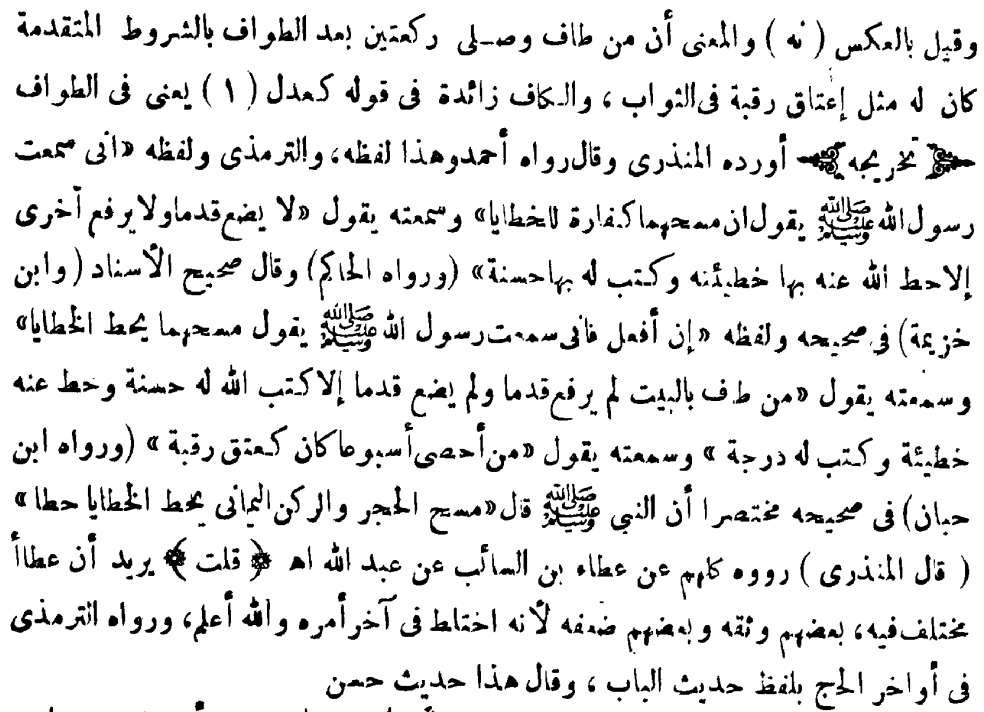 وقيل بالعكس ( نه ) والمعنى أن من طاف وصلى ركعتين بعد الطواف بالشروط المتقدمة
كان له مثل إعتاق رقبة فى الثواب ، والكاف زائدة فى قوله كعدل ( ١ ) يعنى فى الطواف
تخريجه أورده المنذرى وقال رواه أحمد وهذا لفظه، والترمذى ولفظه «انى سمعت
رسول الله ﷺ يقول ان مسحهما كفارة للخطايا» وسمعته يقول «لا يضع قدما ولا يرفع أخرى
إلا حط الله عنه بها خطيئته وكتب له بها حسنة» (ورواه الحاكم) وقال صحيح الأسناد ( وابن
خزيمة) فى صحيحه ولفظه «إن أفعل فانى سمعت رسول الله ﷺ يقول مسحهما يحط الخطايا»
وسمعته يقول «من طاف بالبيت لم يرفع قدما ولم يضع قدما إلا كتب الله له حسنة وحط عنه
خطيئة وكتب له درجة » وسمعته يقول «من أحصى أسبوعا كان كعتق رقبة » (ورواه ابن
حبان) فى صحيحه مختصرا أن النبي ﷺ قال «مسح الحجر والركن اليمانى يحط الخطايا حطا»
( قال المنذرى ) رووه كلهم عن عطاء بن السائب عن عبد الله اهـ ﴿ قلت ﴾ يريد أن عطاأ
مختلف فيه، بعضهم وثقه وبعضهم ضعفه لأنه اختلط فى آخر أمره والله أعلم، ورواه الترمذى
فى أواخر الحج بلفظ حديث الباب ، وقال هذا حديث حسن